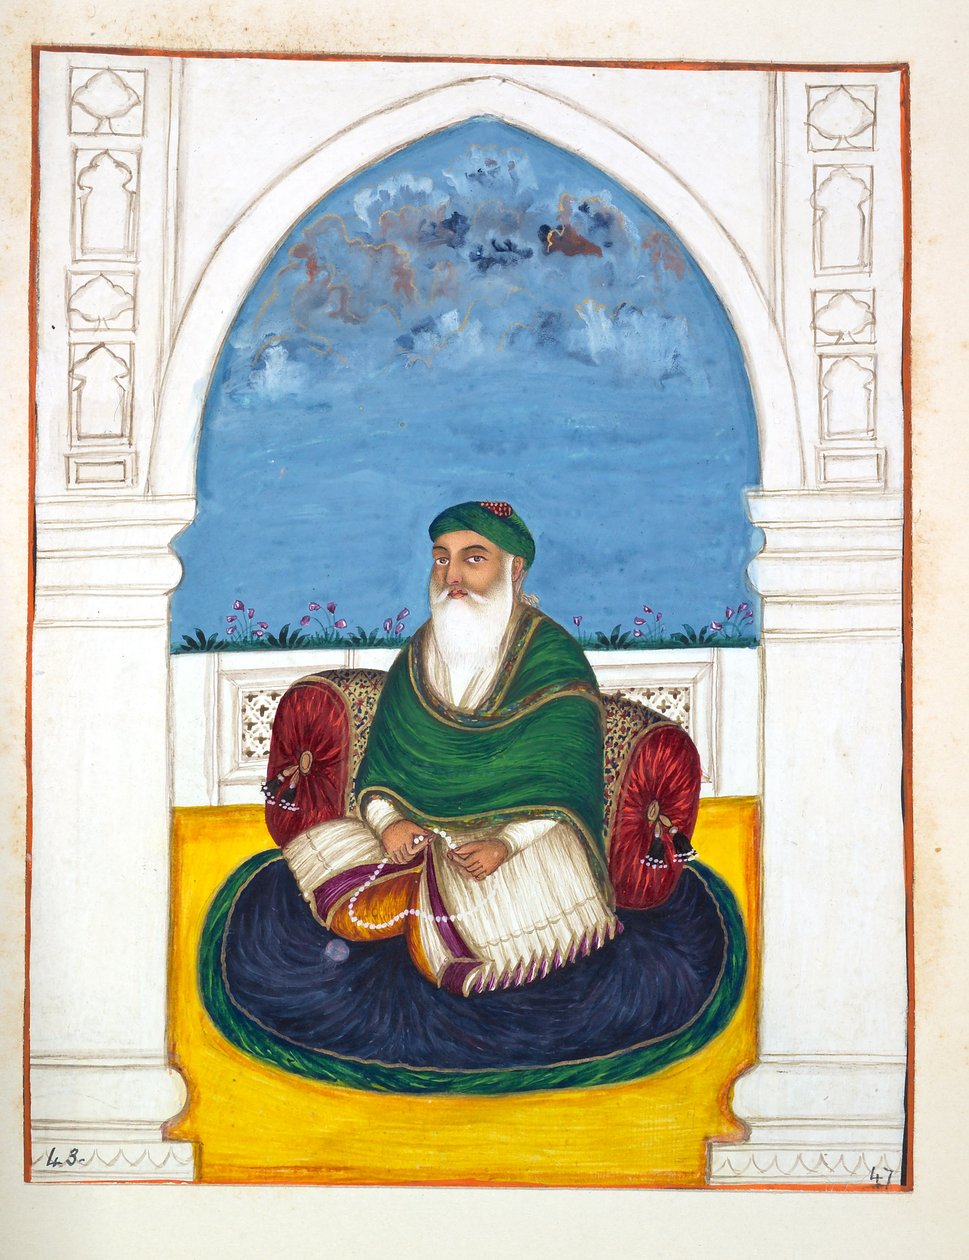 43-
47